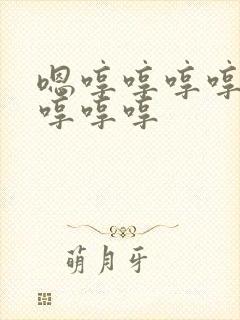 嗯哼哼哼哼
哼哼哼
萌月牙